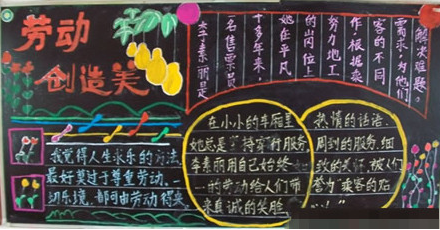 劳动
创造美
李素丽是
名售票员
十多年来，
她在平凡
的岗位上
努力地工
作，根据乘
客的不同
需求，为他们
解决难题。
我觉得人生求乐的方法
最好莫过于尊重劳动。
切乐境，都可由劳动得来
在小小的车厢里
她总是 的服务
李素丽用自己始终
一的劳动给人们带
来真诚的笑脸
热情的话语、
周到的服务、细
致的关怀，被人们
誉为"乘客的贴